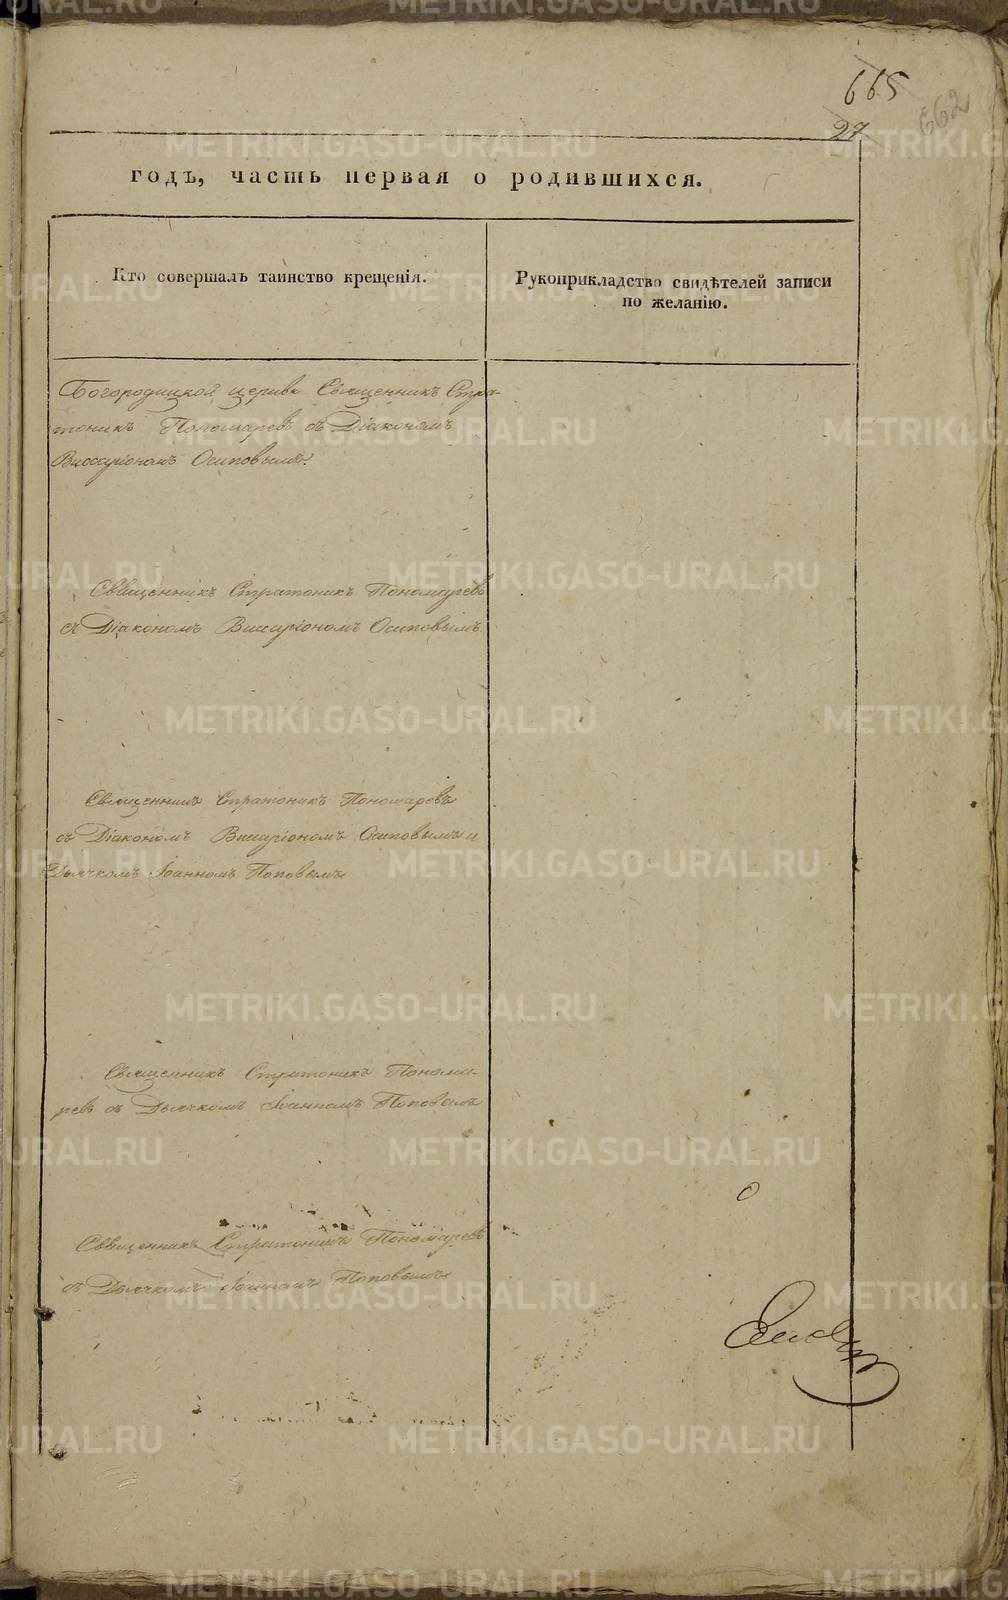 665
662
27
годъ, часть первая о родившихся.
Кто совершалъ таинство крещенія.
Рукоприкладство свидѣтелей записи
по желанію.
Богородицкой церкви Священникъ Стра-
тоникъ Пономаревъ съ Діакономъ
Виссаріономъ Осиповымъ.
Священникъ Стратоникъ Пономаревъ
съ Діакономъ Виссаріономъ Осиповымъ
Священникъ Стратоникъ Пономаревъ
съ Діакономъ Виссаріономъ Осиповымъ и
Дьячкомъ Іоанномъ Поповымъ
Священникъ Стратоникъ Понома-
ревъ съ Дьячкомъ Іоанномъ Поповымъ
Священникъ Стратоникъ Пономаревъ
съ Дьячкомъ Іоанномъ Поповымъ
METRIKI.GASO-URAL.RU